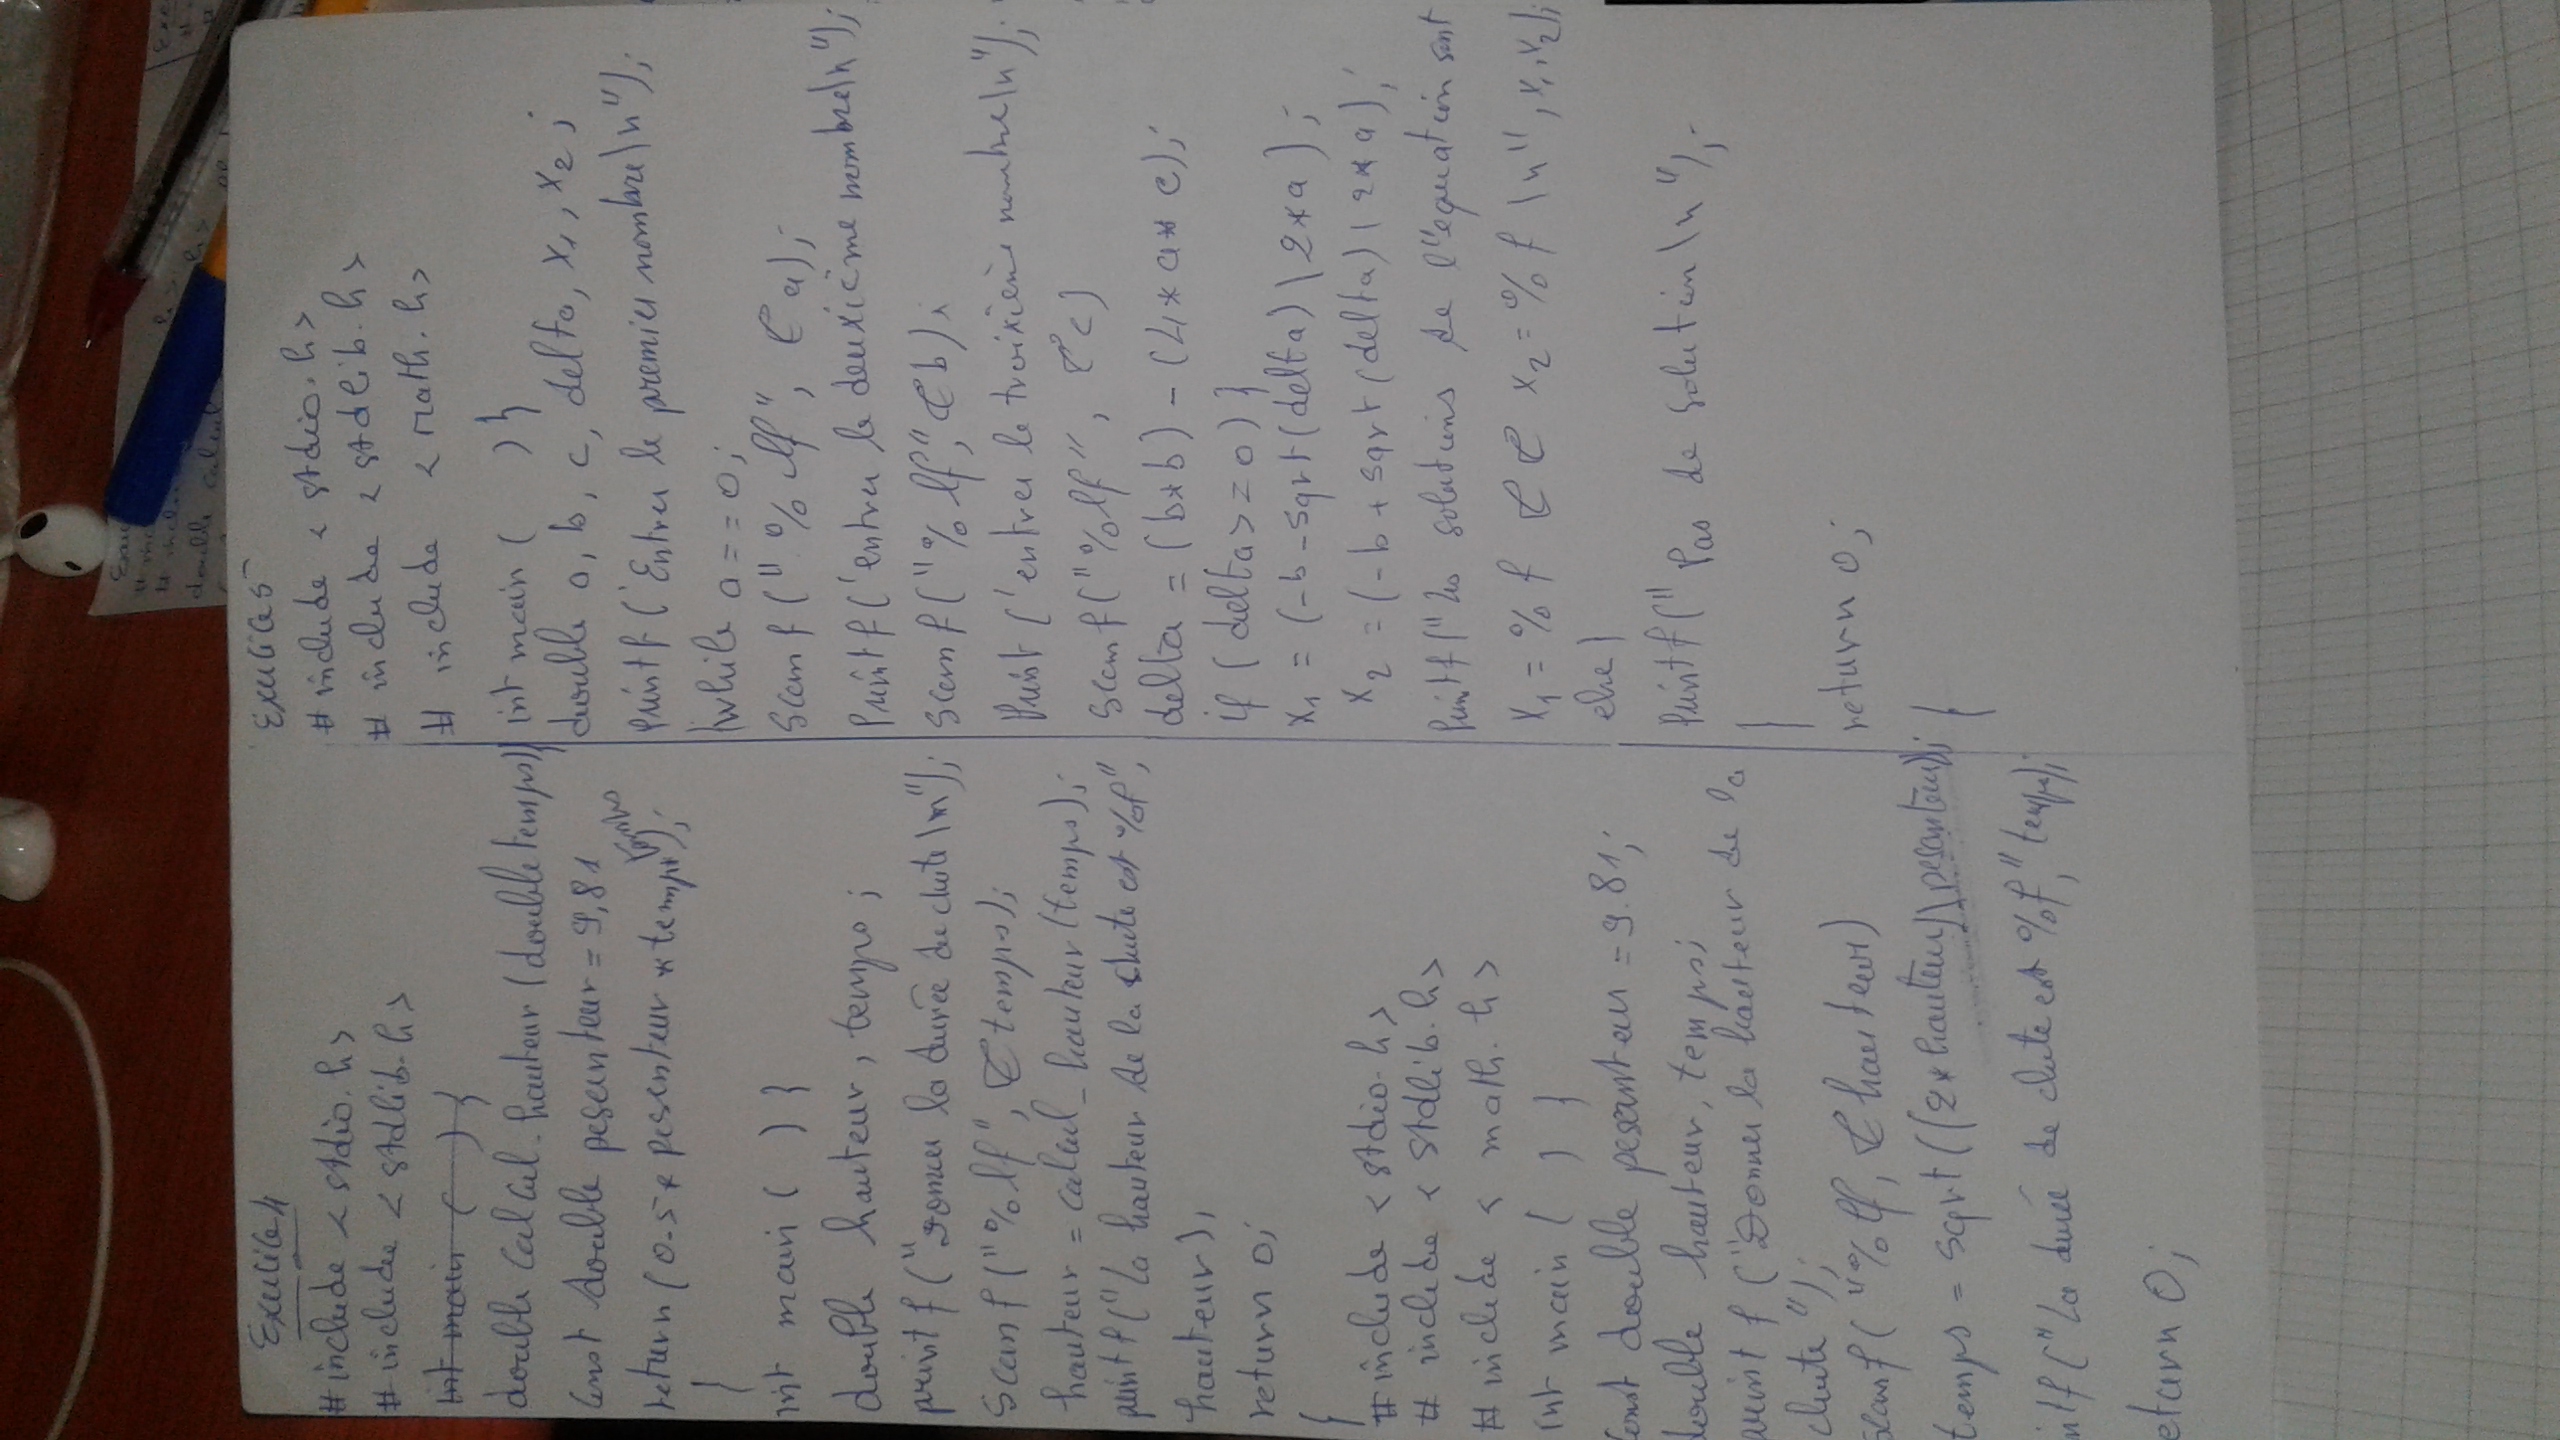 Exercice 4
#include <stdio.h>
#include <stdlib.h>
int main ( ) }
double calcul_hauteur (double temps)
const double pesanteur = 9,81
return (0.5 * pesenteur * temps * temps);
{
int main ( ) }
double hauteur, temps ;
printf ("Donner la durée de chute \n");
scanf ("%lf", &temps);
hauteur = calcul_hauteur (temps);
printf ("La hauteur de la chute est %f",
hauteur);
return 0;
{
#include <stdio.h>
# include <stdlib.h>
# include < math.h>
int main ( ) }
const double pesanteur = 9.81;
double hauteur, temps;
print f ("Donner la hauteur de la
chute ");
scanf ( "%lf, &hauteur)
temps = sqrt ((2*hauteur)\pesanteur));
intf ("La durée de chute est %f," temps);
eturn 0;
Exercice 5
# include < stdio.h>
# include < stdlib.h>
# include < math.h>
int main ( ) }
double a, b, c, delta, x1, x2 ;
printf ('Entrer le premier nombre \n");
while a == 0;
scanf (" %lf", &a);
printf ('entrer le deuxième nombre \n");
scanf ("%lf," &b);
Print ('entrer le troixième nombre \n");
scanf ("%lf", &c)
delta = (b*b) - (4*a*c);
if (delta >= 0) }
x1 = (-b - sqrt (delta) \ 2*a );
x2 = (-b + sqrt (delta) \ 2*a );
Printf (" les solutions de l"equation sont
x1 = %f && x2 = %f \n", x1, x2);
else )
Printf (" Pas de solution \n ");
}
return 0;
{
Exer
# inc
# inclu
double calcul
h>
Exe
#
#